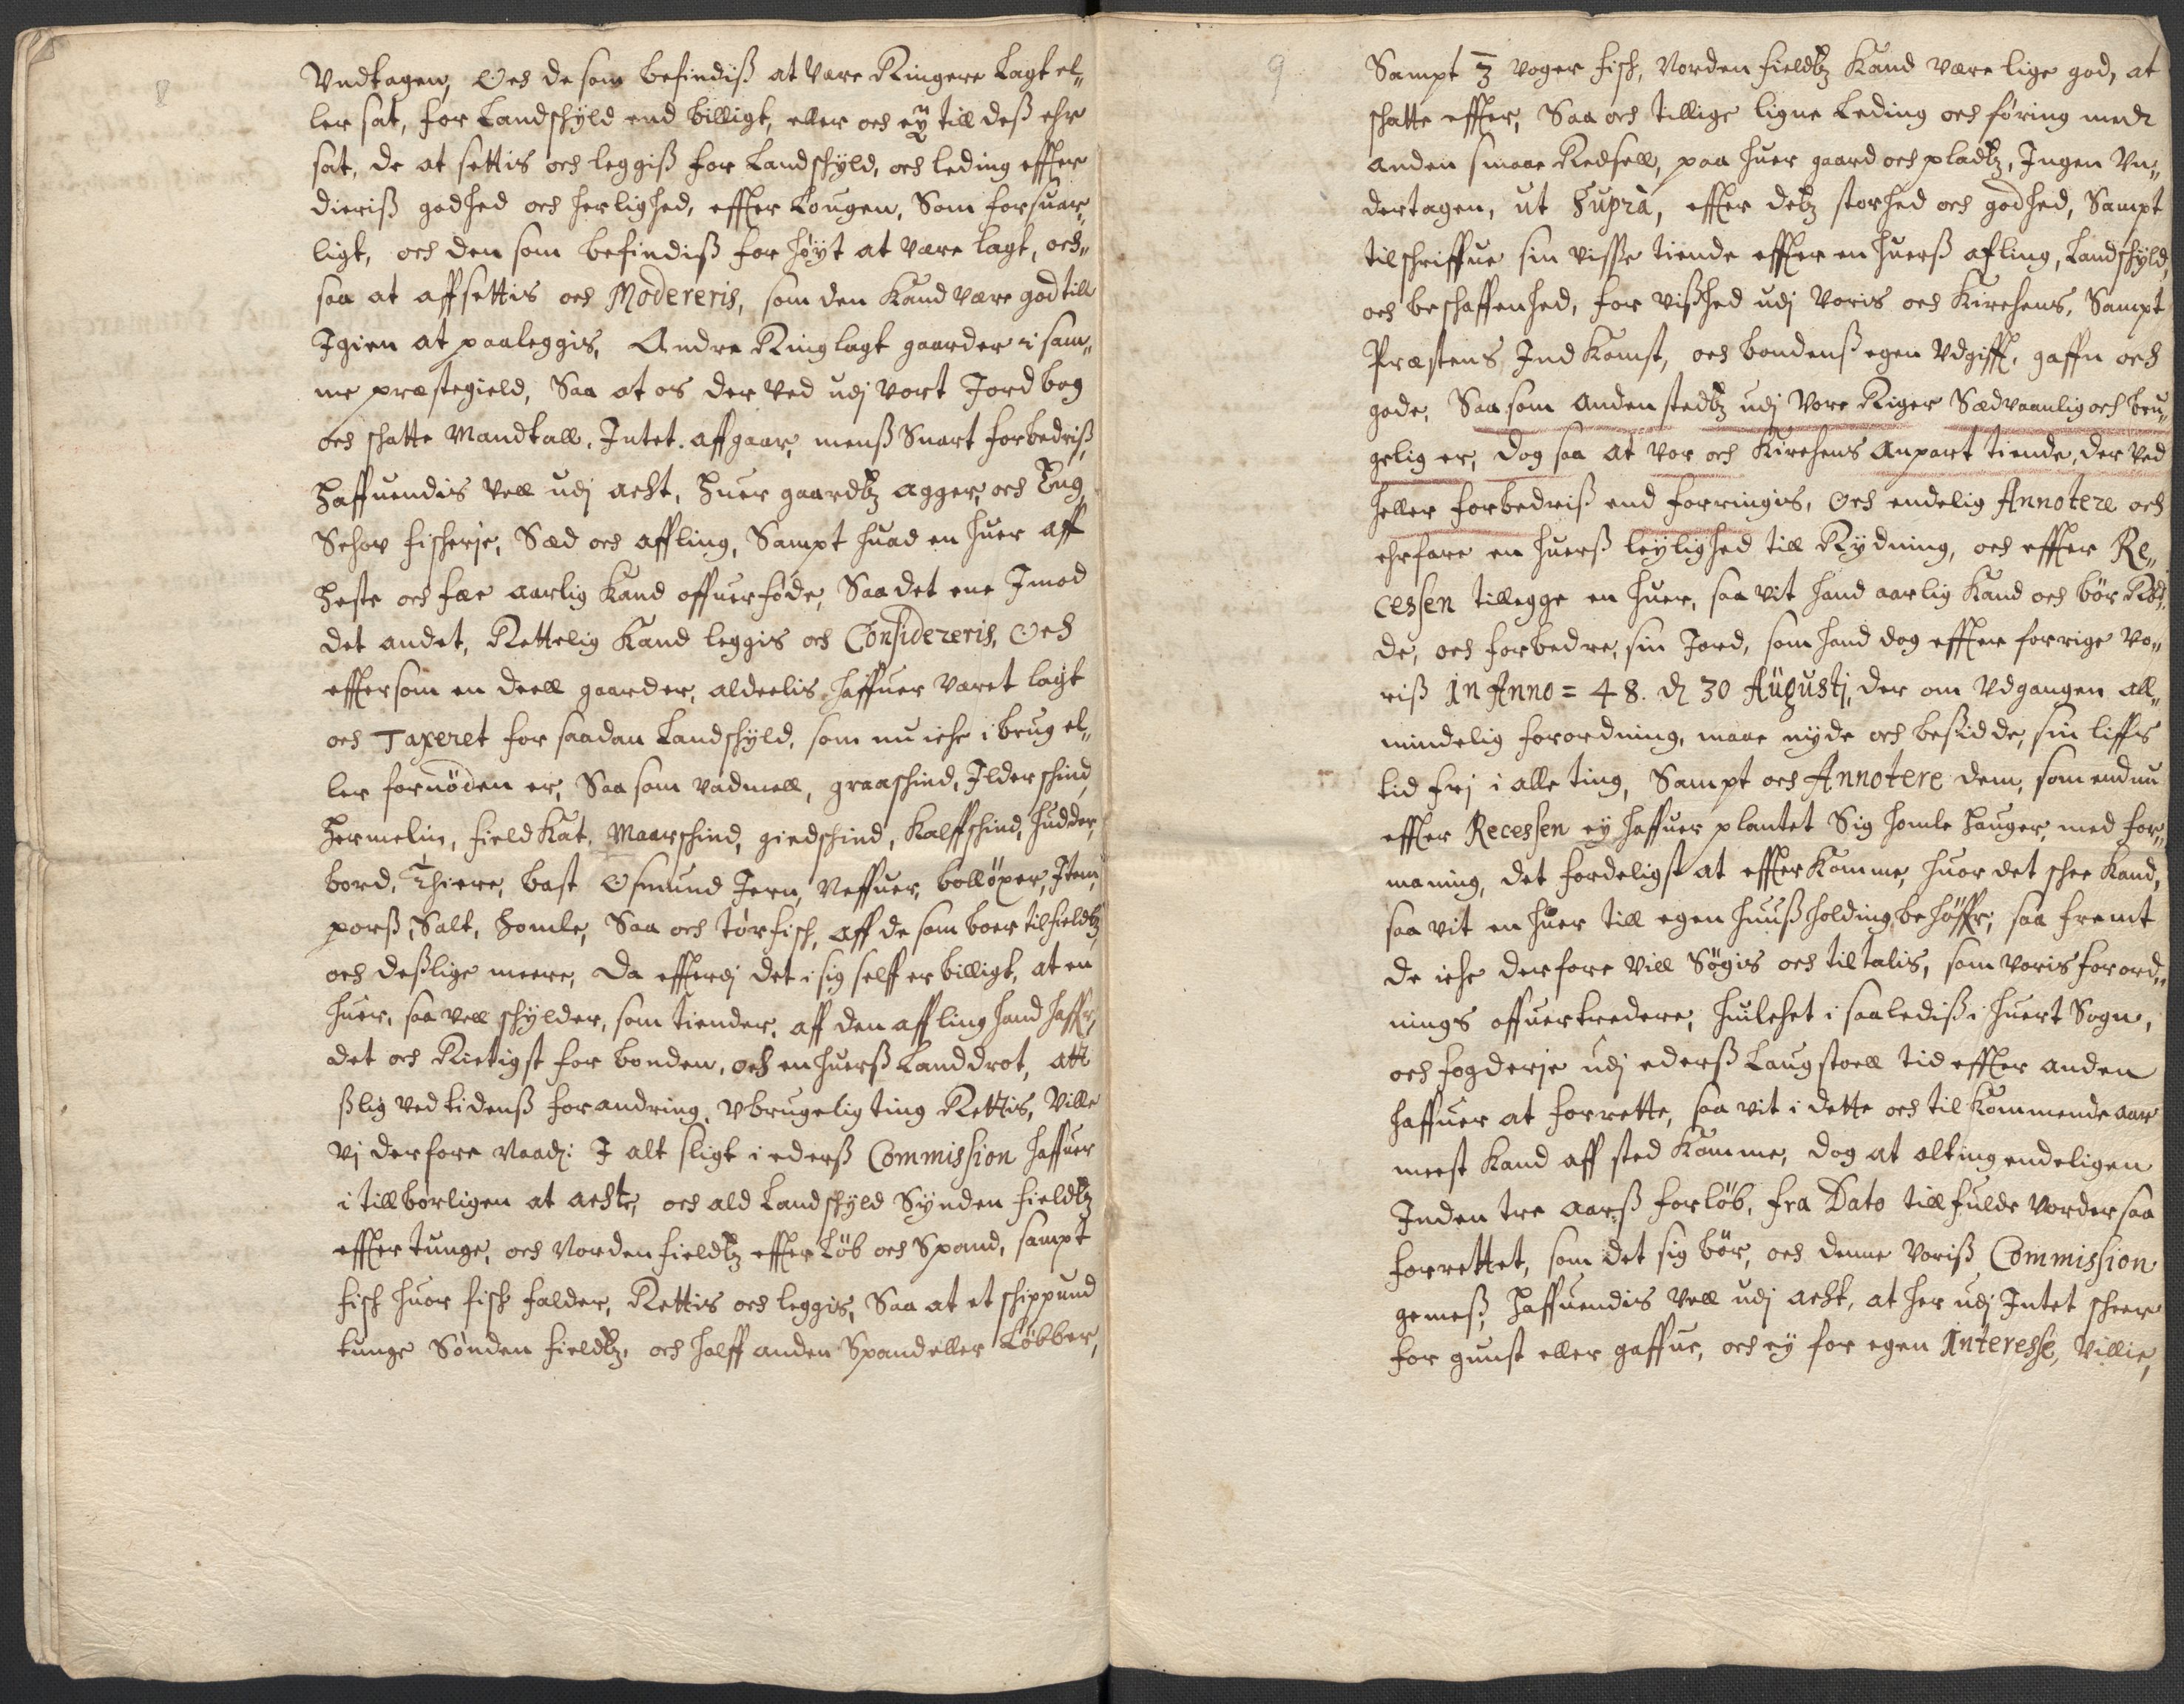 8
Vndtagen, Och de som befindiß at være Ringere Lagt el„
ler sat, for Landschyld end billigt, eller och eÿ till deß ehr
sat, de at settis och leggiß for Landschyld, och leding effter
dieriß godhed och herlighed, effter Lougen, Som forsuar„
ligt, och den som befindiß for høyt at være lagt, och„
saa at affsettis och Modereris, som den Kand være god till
Igien at paaleggis, Andre Ringlagt gaarder i sam„
me præstegield, Saa at os der ved udj vort Jordbog
och schatte Mandtall, Intet affgaar, menß Snart forbedriß,
Haffuendis Vell udj acht, Huer gaardtz agger, och Eng,
Schov fischerje, Sæd och affling, Sampt huad en huer aff
Heste och fæe aarlig Kand offuerføde, Saa det ene Imod
det andet, Rettelig Kand leggis och Considereris, Och
effter som en deell gaarder, aldeelis haffuer været lagt
och Taxeret for saadan Landschyld, som nu iche i brug el„
ler fornöden er, Saa som vadmell, graaschind, Ilderschind,
Hermelin, field Kat, Maarschind, giedschind, Kalffschind, hudder,
bord, Thiere, bast Osmund Jern, Neffuer, bolløxer, Item,
porß, Salt, Homle, Saa och tør fisch, aff de som boer tilfieldtz
och deßlige meere, Da effterdj det i sig self er billigt, at en
huer, saa vell schylder, som tiender, aff den affling hand haffr,
det och Rictigst for bonden, och en huerß Landdrot, att
ßlig ved tidenß forandring, vbrugelig ting Rettis, Ville
Vj derfore Naadj: I alt sligt i ederß Commission haffuer
i tillbørligen at achte, och ald Landschyld Synden fieldtz
effter tunge, och Norden fieldtz effter Løb och Spand, sampt
fisch huor fisch falder, Rettis och leggis, Saa at et schippund
tunge Sønden fieldtz, och halff anden Spand eller Løbber,
9
Sampt 3 voger fisch, Norden fieldtz Kand være lige god, at
schatte effter, Saa och tillige ligne Leding och føring med
anden smaae Redsell, paa huer gaard och pladtz, Ingen Vn„
dertagen, ut Supra, effter detz storhed och godhed, Sampt
tilschriffue sin visse tiende effter en huerß afling, Landschyld,
och beschaffenhed, for vißhed udj Voris och Kirchens, Sampt
Præstens, Ind Komst, och bondenß egen Vdgifft, gaffn och
gode, Saa som anden stedtz udj Vore Riger Sædvaanlig och bru„
gelig er, dog saa at vor och Kirchens Anpart tiende, der ved
heller forbedriß end forringis, Och endelig Annotere och
ehrfare en huerß leylighed till Rydning, och effter Re„
cessen tillegge en huer, saa vit hand aarlig Kand och bør Rød„
de, och forbedre, sin Jord, som hand dog effter forrige Vo„
riß in Anno = 48. d 30 Augustj, der om Vdgangen all„
mindelig forordning, maae nyde och besidde, sin liffs
tid frj i alle ting, Sampt och Annotere dem, som endnu
effter Recessen eÿ haffuer plantet Sig Homle hauger, med for„
maning, det fordeligst at effterkomme, huor det schee Kand,
saa vit en huer till egen huußholding behøffr, saa fremt
de iche derfore vill Søgis och tiltalis, som voris forord„
nings offuertredere, Huilchet i saalediß i huert Sogn,
och fogderje udj ederß Laugstoell tid effter anden
haffuer at forrette, saa vit i dette och tilkommende aar
meest Kand aff sted Komme, dog at alting endeligen
Inden tre aarß forløb, fra Dato till fulde vorder saa
forrettet, som det sig bør, och denne Voriß Commission
gemeß, Haffuendis Vell udj acht, at her udj Intet scheer
for gunst eller gaffue, och eÿ for egen Interesse, Villie,